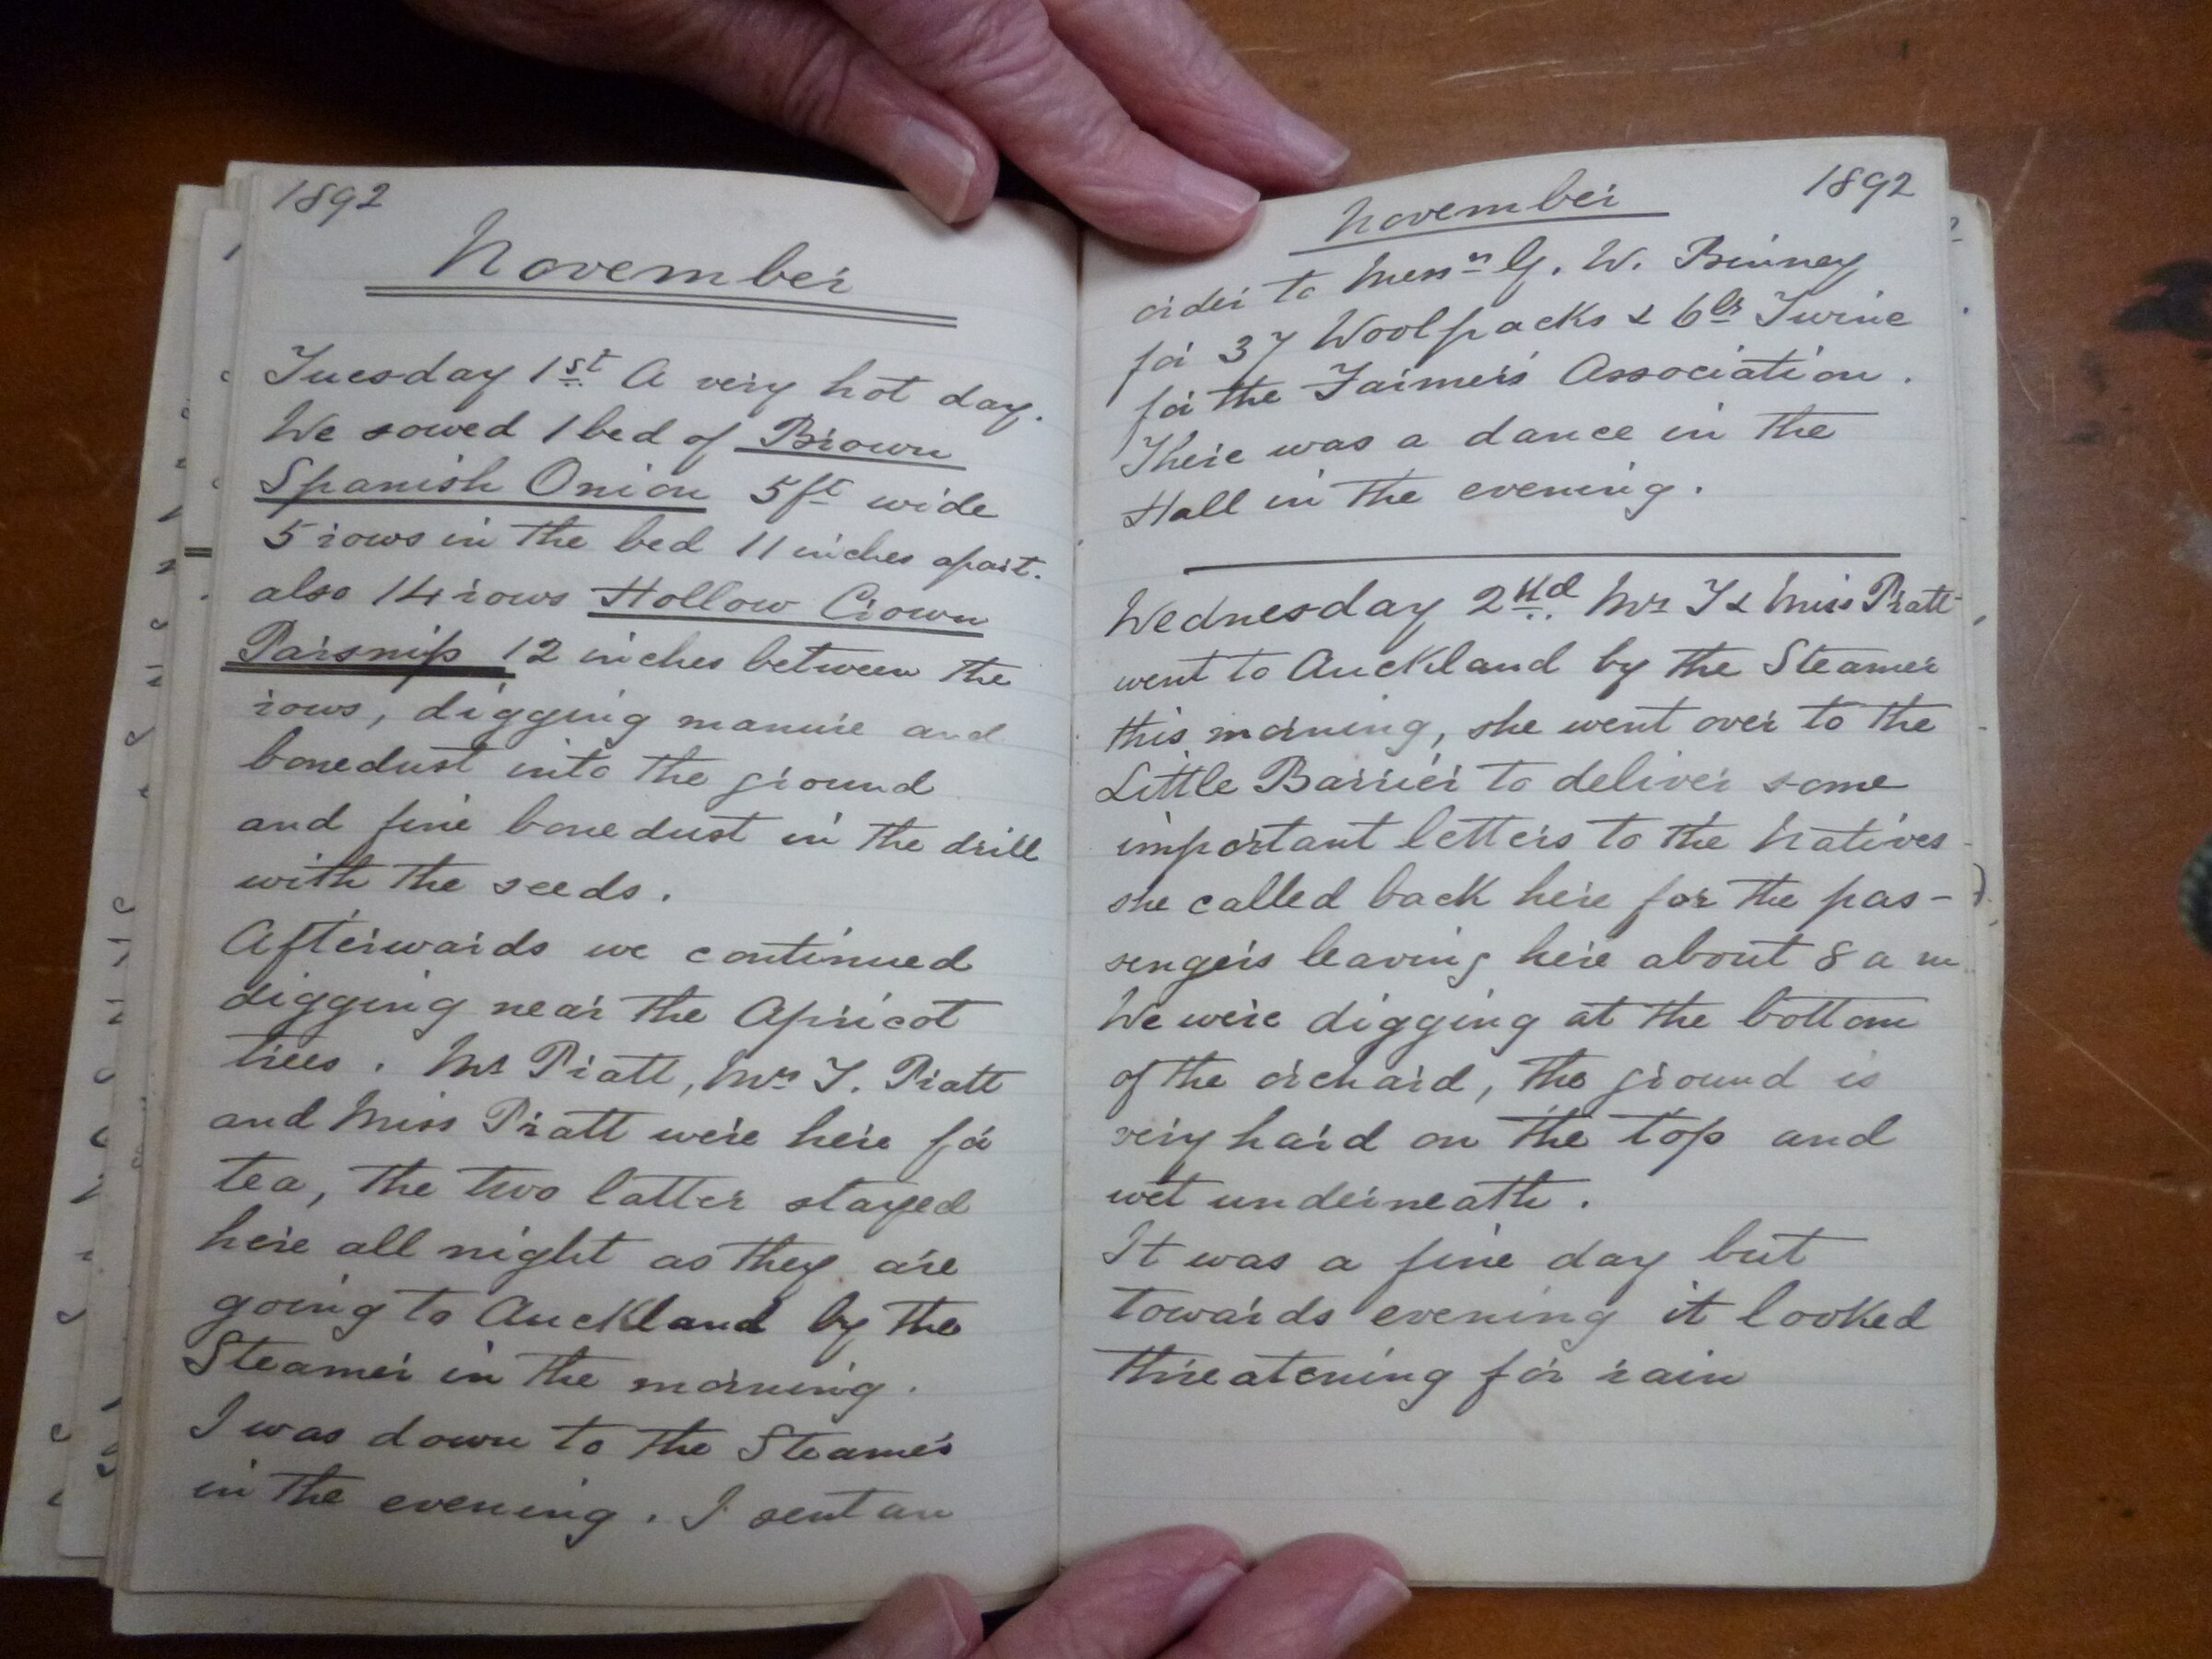 1892
November
Tuesday 1st A very hot day.
We sowed 1 bed of Brown
Spanish Onion 5ft wide
5 rows in the bed 11 inches apart.
also 14 rows Hollow Crown
Parsnip 12 inches between the
rows, digging manure and
bonedust into the ground
and fine bonedust in the drill
with the seeds.
Afterwards we continued
digging near the Apricot
trees. Mr Pratt, Mrs T. Pratt
and Miss Pratt were here for
tea, the two latter stayed
here all night as they are
going to Auckland by the
Steamer in the morning.
I was down to the Steamer
in the evening. I sent an
November 1892
order to Messrs G. W. Binney
for 37 Woolpacks & 6lbs Twine
for the Farmers Association.
There was a dance in the
Hall in the evening.
Wednesday 2nd Mrs T & Miss Pratt
went to Auckland by the Steamer
this morning, she went over to the
Little Barrier to deliver some
important letters to the Natives
she called back here for the pas-
sengers leaving here about 8 a m
We were digging at the bottom
of the orchard, the ground is
very hard on the top and
wet underneath.
It was a fine day but
towards evening it looked
threatening for rain